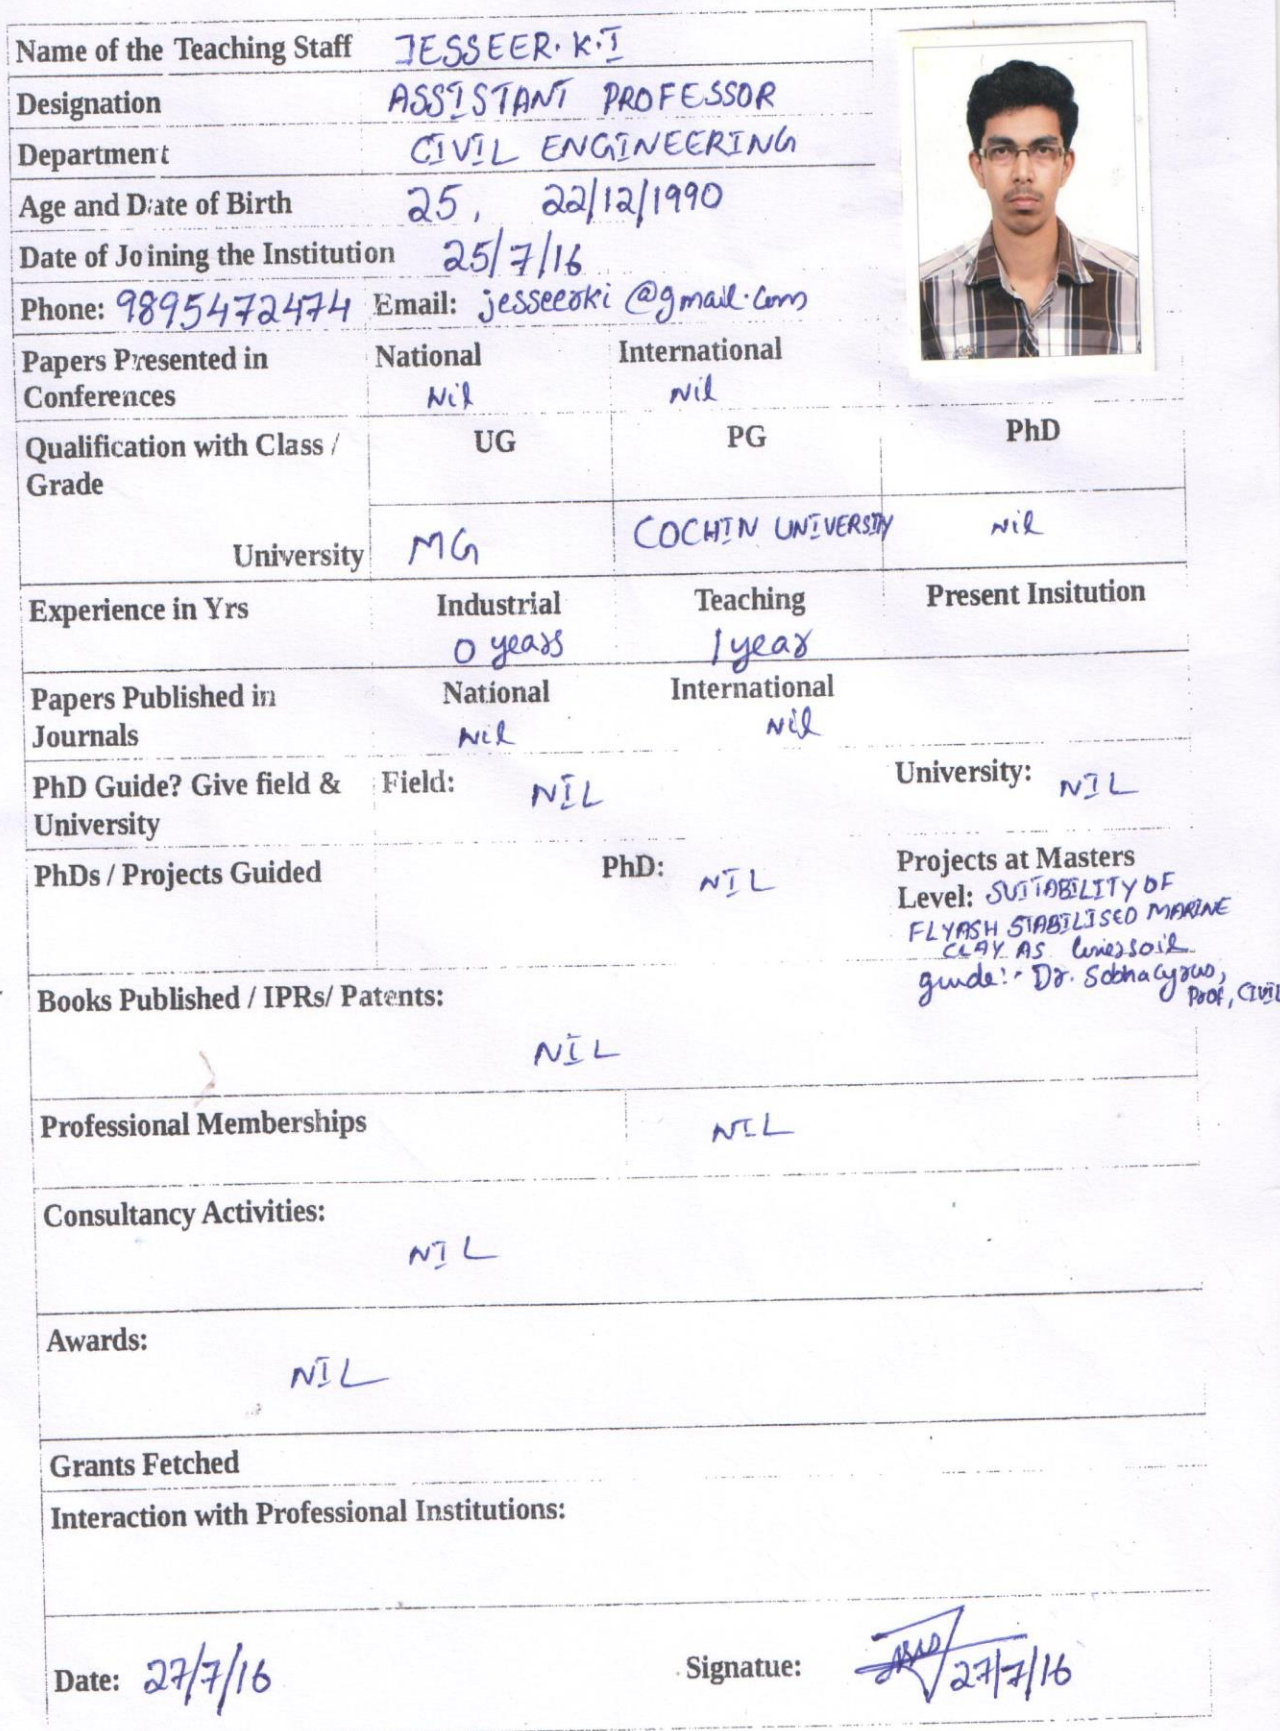 Name of the Teaching Staff JESSEER. K.I
Designation ASSISTANT PROFESSOR
Department CIVIL ENGINEERING
Age and Date of Birth 25, 22/12/1990
Date of Joining the Institution 25/7/16
Phone: 9895472474 Email: jesseerki@gmail.com
Papers Presented in National International
Conferences Nil Nil
Qualification with Class / UG PG PhD
Grade
University MG COCHIN UNIVERSITY Nil
Experience in Yrs Industrial Teaching Present Insitution
0 years 1 year
Papers Published in National International
Journals Nil Nil
PhD Guide? Give field & Field: NIL University: NIL
University
PhDs / Projects Guided PhD: NIL Projects at Masters
Level: SUITABILITY OF
FLYASH STABILISED MARINE
CLAY AS liner soil
guide:- Dr. Sobha Cyrus,
Prof, CIVIL
Books Published / IPRs/ Patents:
NIL
Professional Memberships NIL
Consultancy Activities:
NIL
Awards:
NIL
Grants Fetched
Interaction with Professional Institutions:
Date: 27/7/16 Signatue: 27/7/16